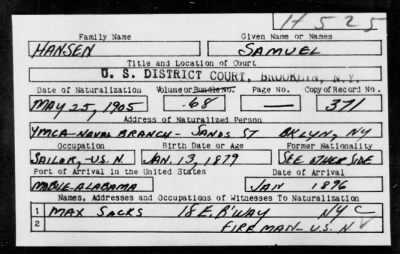 H 525
Family Name Given Name or Names
HANSEN SAMUEL
Title and Location of Court
U. S. DISTRICT COURT, BROOKLYN, N.Y.
Date of Naturalization Volume or Bundle No. Page No. Copy of Record No.
MAY 25, 1905 68 — 371
Address of Naturalized Person
YMCA-NAVAL BRANCH- SANDS ST BKLYN, NY
Occupation Birth Date or Age Former Nationality
SAILOR, US. N. JAN. 13, 1879 SEE OTHER SIDE
Port of Arrival in the United States Date of Arrival
MOBILE-ALABAMA JAN 1896
Names, Addresses and Occupations of Witnesses To Naturalization
1 MAX SACKS 18 E. B'WAY NYC
2 FIREMAN-US. N